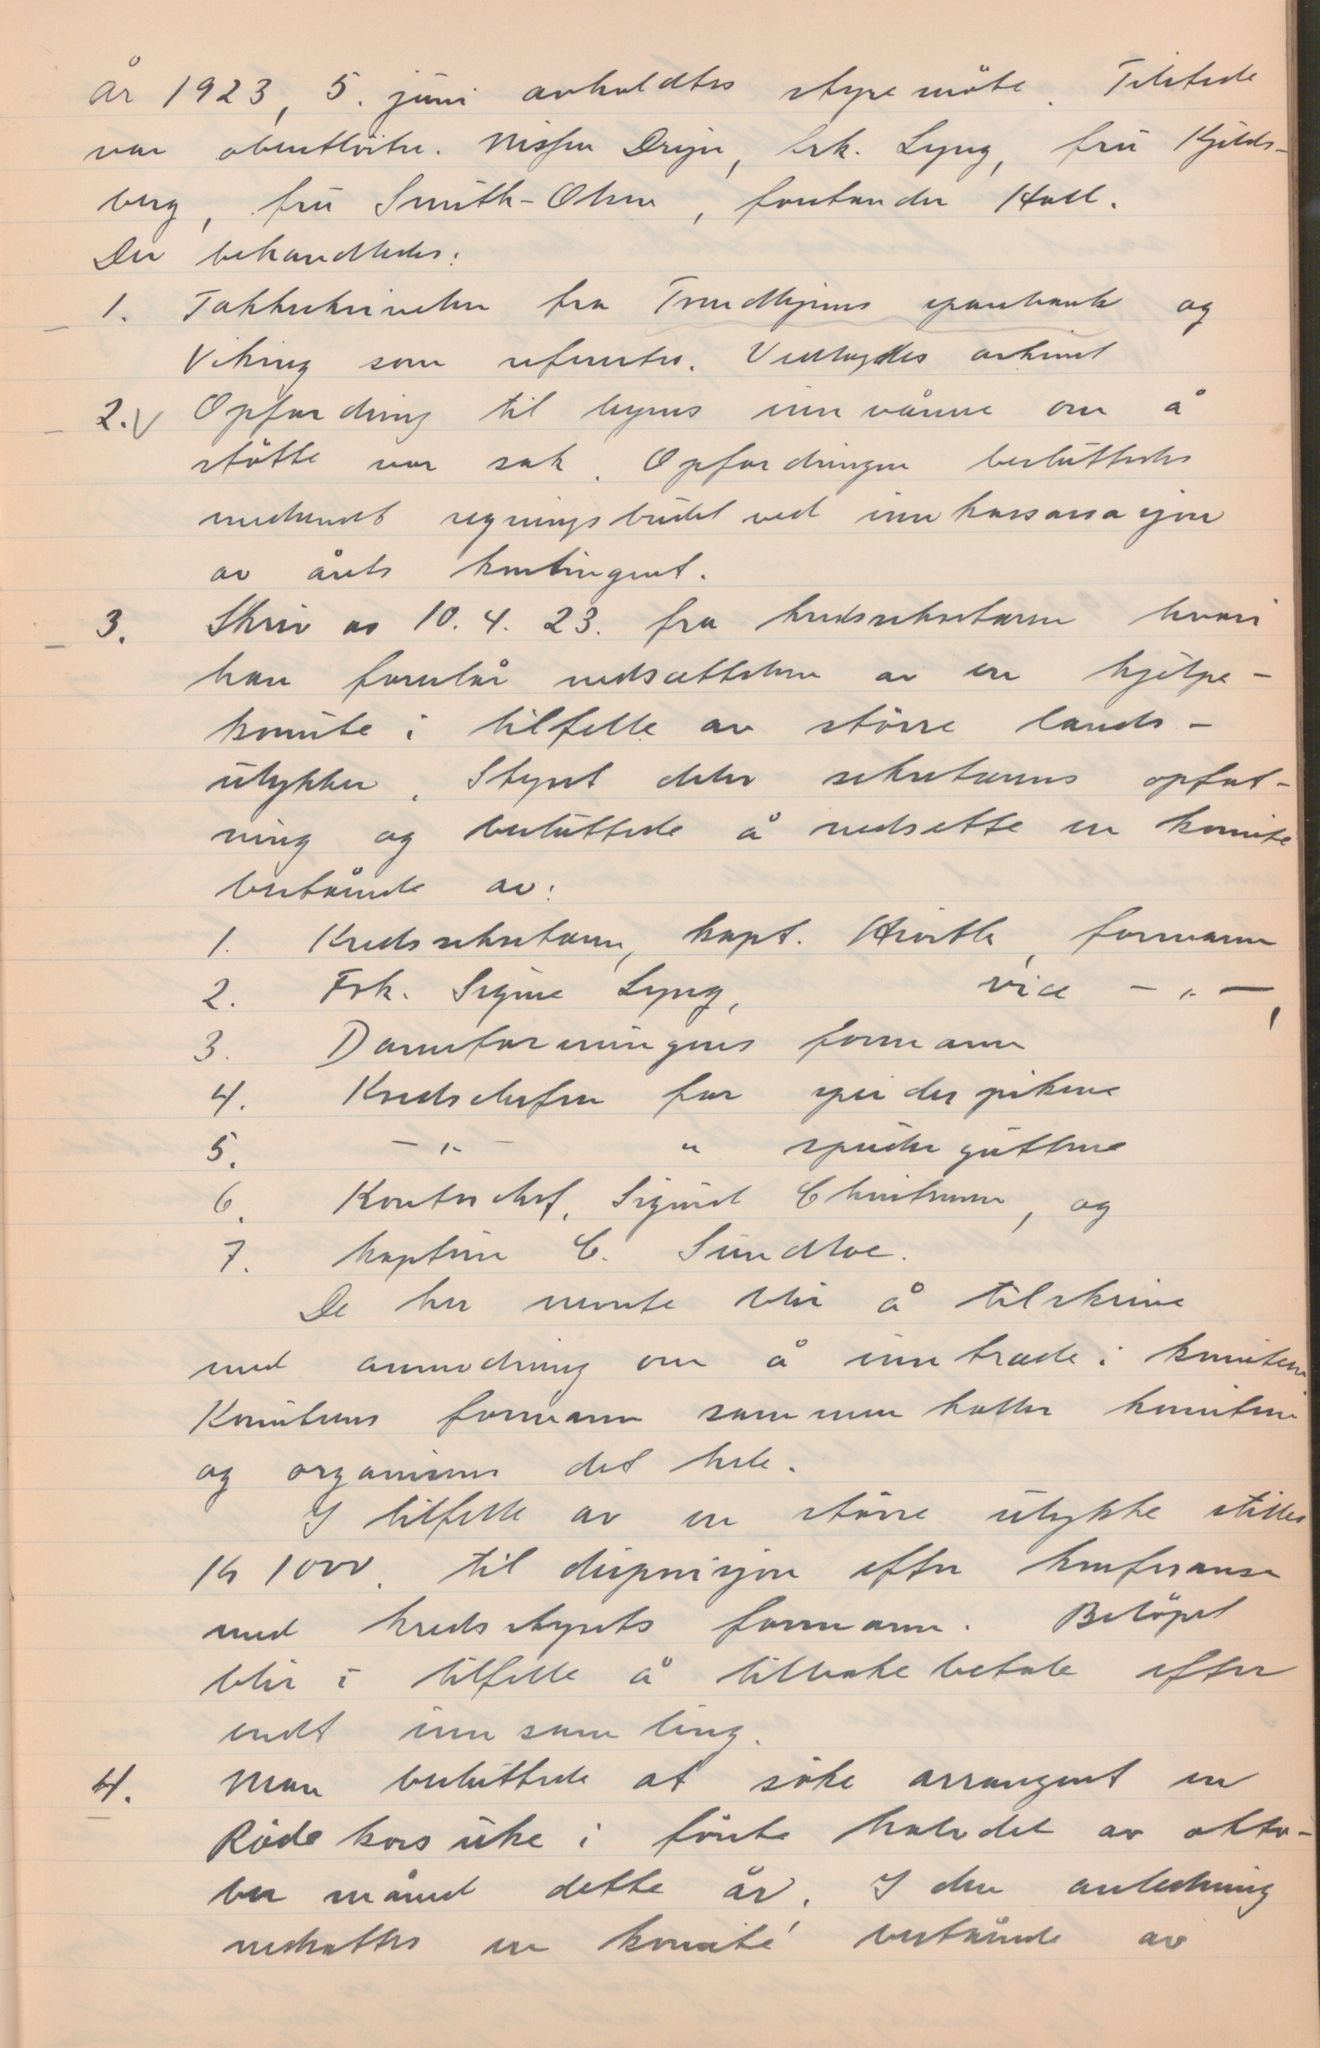 År 1923, 5. juni avholdtes styremöte. Tilstede
var oberstlöitn. Nissen Drejer, frk. Lyng, fru Kjelds-
berg, fru Smith-Olsen, forstander Hall.
Der behandledes:
1. Takkeskrivelser fra Trondhjems sparebank og
Viking som refertes. Vedtoges arkivert
2. √ Opfordring til byens innvånere om å
stötte vor sak. Opfordringen besluttedes
medsendt regningsbudet ved innkassasjon
av årets kontingent.
3. Skriv av 10.4.23. fra kredssekretæren hvori
han foreslår nedsættelsen av en hjelpe-
komite i tilfelle av större lands-
ulykker. Styret deler sekretærens opfat-
ning og besluttede å nedsette en komite
bestående av:
1. Kredssekretæren, kapt. Hirsth, formann
2. Frk. Signe Lyng, vice -"-,
3. Dameforeningens formann
4. Kredschefen for speiderpikene
5. -"- " speiderguttene
6. Kontorchef. Sigurd Christensen, og
7. kaptein C. Sundloe.
De her nevnte blir å tilskrive
med anmodning om å inntræde i komiteen.
Komiteens formann sammenkaller komiteen
og organiserer det hele.
I tilfelle av en större ulykke stilles
Kr 1000. til disposisjon efter konferanse
med kredsstyrets formann. Belöpet
blir i tilfelle å tilbakebetale efter
endt innsamling.
4. Man besluttede at söke arrangert en
Rödekors uke i förste halvdel av okto-
ber måned dette år. I den anledning
nedsattes en komité bestående av